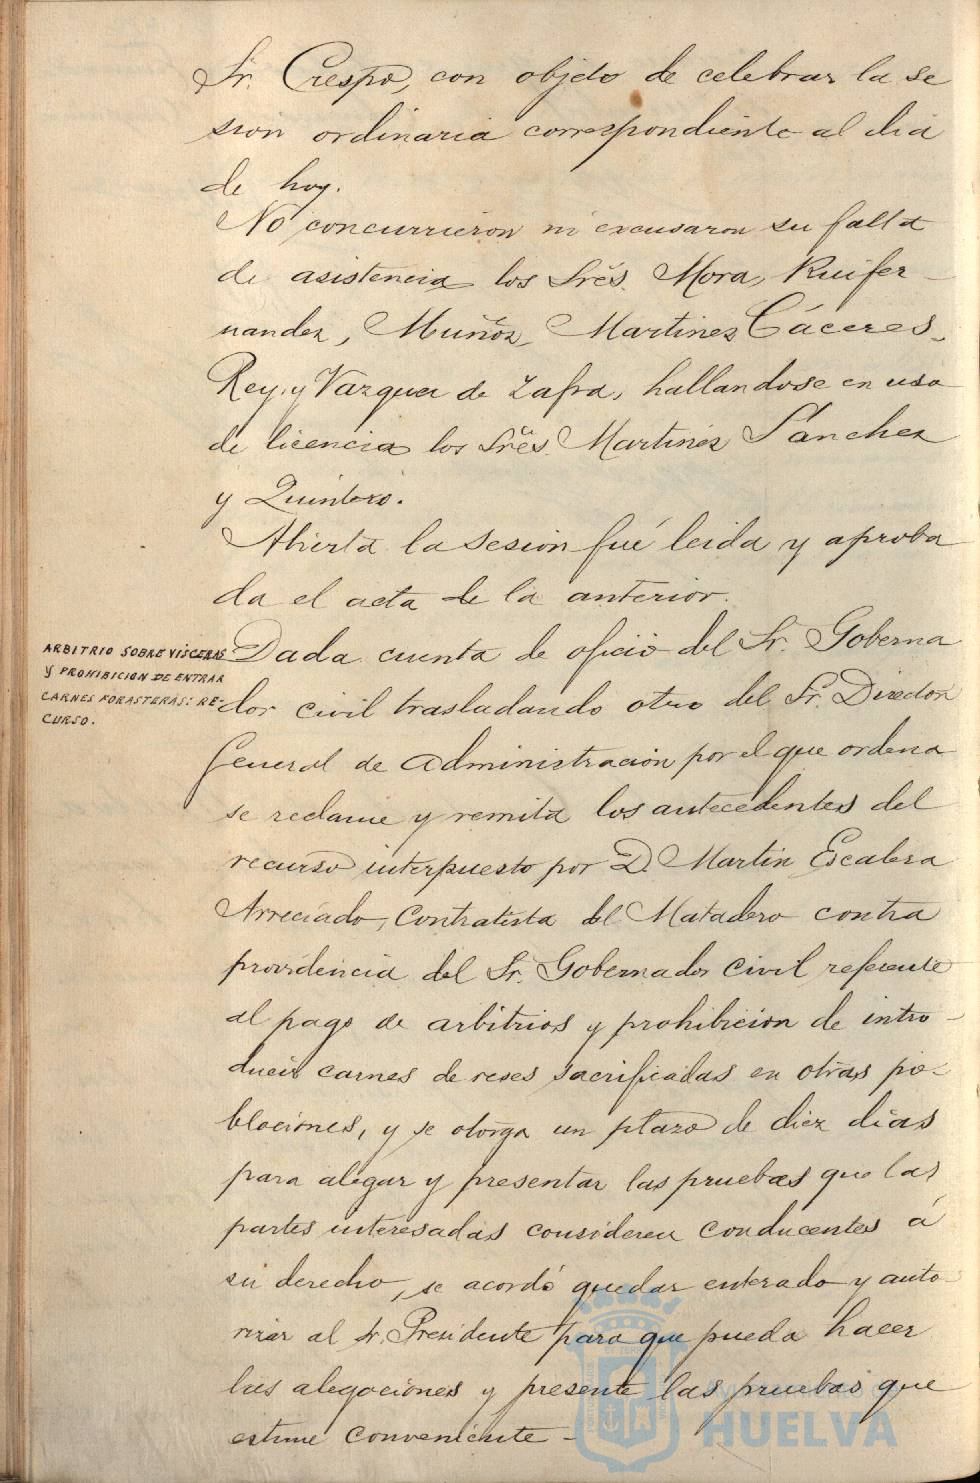 Sr. Crespo, con objeto de celebrar la se
sion ordinaria correspondiente al dia
de hoy.
No concurrieron ni excusaron su falta
de asistencia los Sres. Mora, Ruifer-
nandez, Muñoz, Martinez Cáceres,
Rey, y Vazquez de Zafra, hallandose en uso
de licencia los Sres. Martinez Sanchez
y Quintero.
Abierta la sesion fué leida y aproba
da el acta de la anterior.
ARBITRIO SOBRE VÍSCERAS
Y PROHIBICION DE ENTRAR
CARNES FORASTERAS: RE-
CURSO.
Dada cuenta de oficio del Sr. Goberna
dor civil trasladando otro del Sr. Director
General de Administracion por el que ordena
se reclame y remita los antecedentes del
recurso interpuesto por D. Martin Escalera
Arreciado, Contratista del Matadero contra
providencia del Sr. Gobernador civil referente
al pago de arbitrios y prohibicion de intro-
ducir carnes de reses sacrificadas en otras po-
blaciones, y se otorga un plazo de diez dias
para alegar y presentar las pruebas que las
partes interesadas consideren conducentes á
su derecho, se acordó quedar enterado y auto-
rizar al Sr. Presidente para que pueda hacer
las alegaciones y presente las pruebas que
estime conveniente-
AYUNTAMIENTO DE
HUELVA